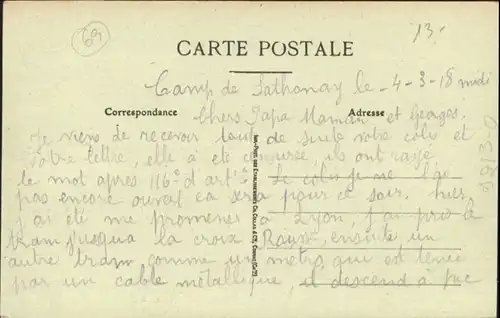 69
13
CARTE POSTALE
Camp de Sathonay le - 4 - 3 - 18 midi
Correspondance
Adresse
Chers Papa Maman et Georges.
Je viens de recevoir tout de suite votre colis et
votre lettre, elle a été censurée, ils ont rayé
le mot après 116º d'art Le colis je ne l'ai
pas encore ouvert ca sera pour ce soir. hier
j'ai été me promener à Lyon, j'ai pris le
tram jusqua la croix Rousse ensuite un
autre tram comme un métro qui est tenue
par un cable métallique, il descend à pic